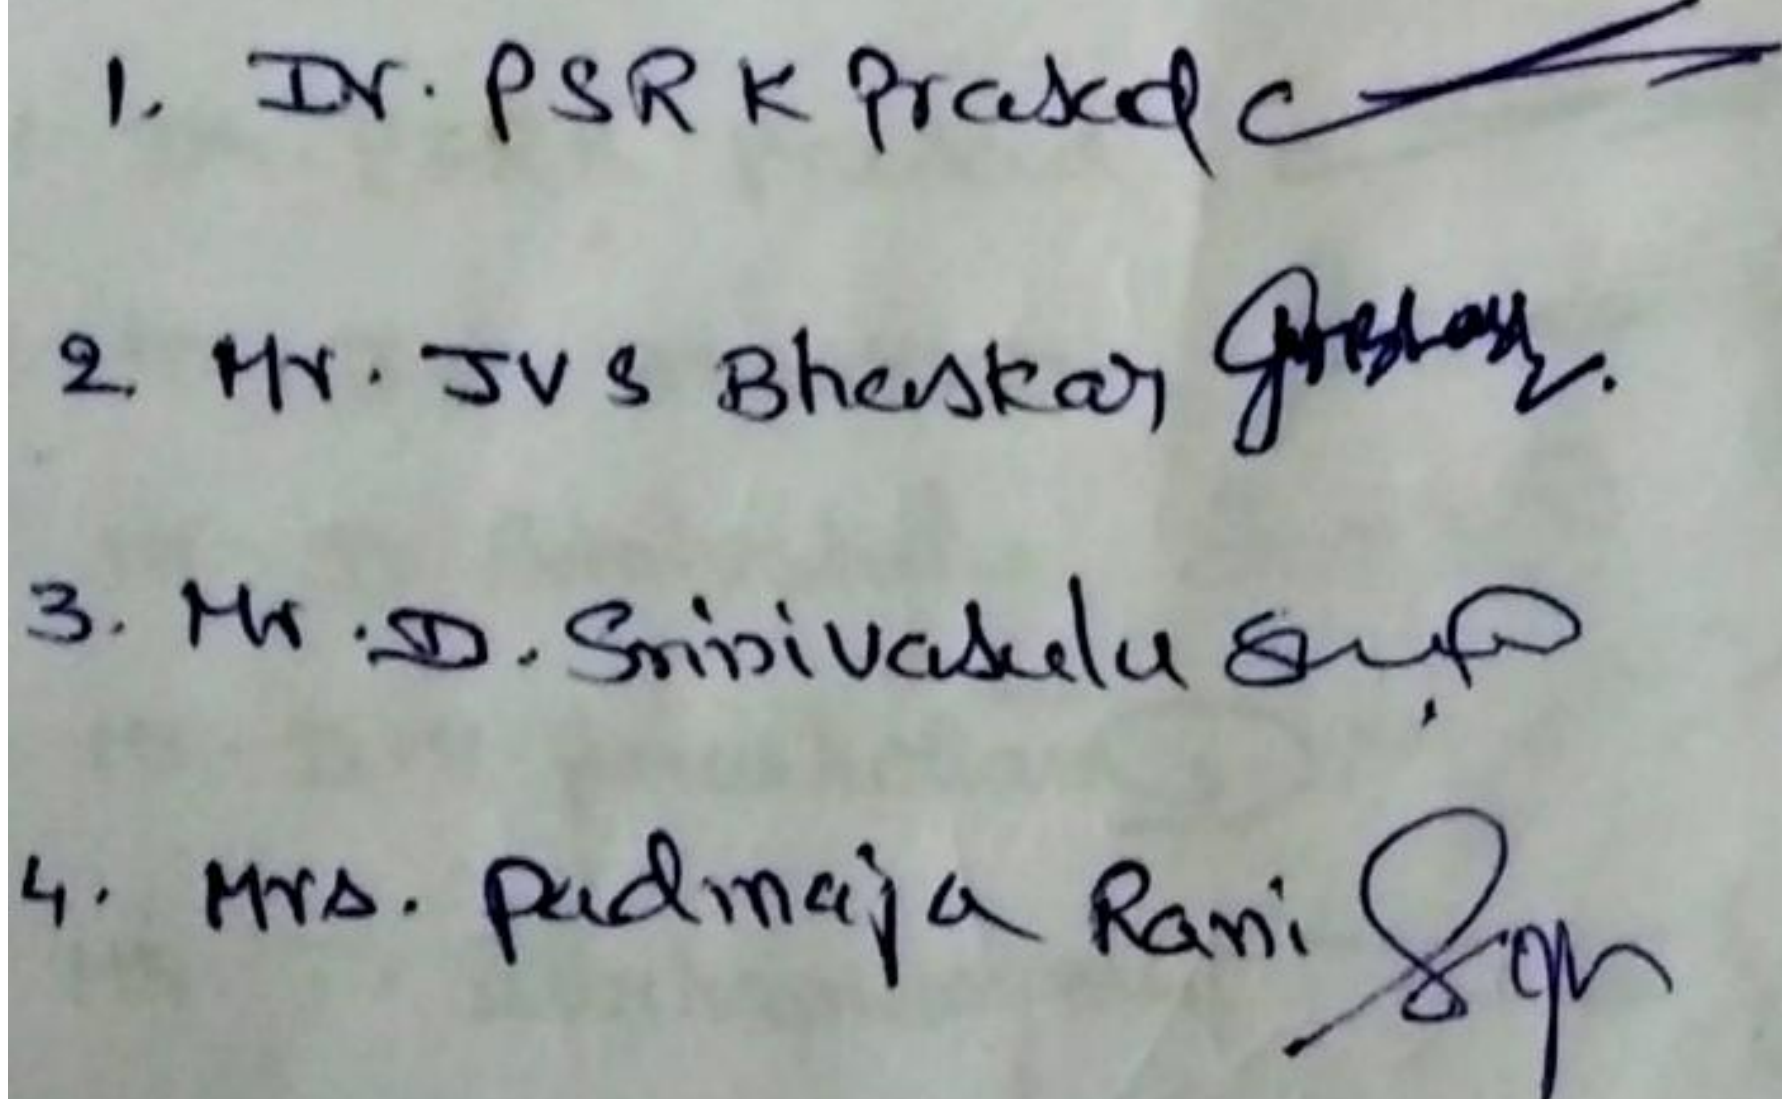 1. Dr. PSRK Prasad
2. Mr. JVS Bhaskar
3. Mr. D. Srinivasulu
4. Mrs. Padmaja Rani